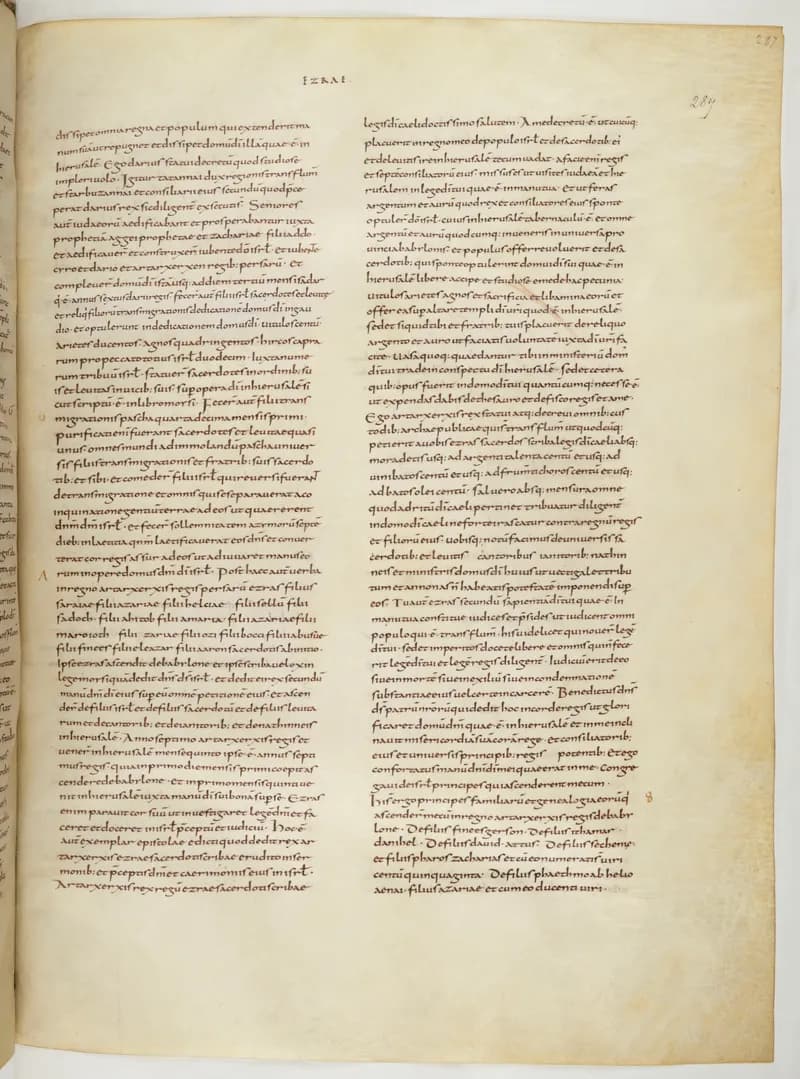 EZRAE
287
289
dissipet omnia regna et populum qui extenderit ma
num suā ut repugnet et dissipet domū dī illā quae ē in
hierusalē · Ego darius statui decretū quod studiose
impleri volo · Igitur tatannai dux regionis trans flum
et starbuzannai et consiliarii eius secundū quod p̄ce
perat darius rex sic diligent̄ executi s̄ · Seniores
aut̄ iudaeorū aedificabant et prosperabantur iuxta
prophetiā aggei prophetae et zachariae filii addo
et aedificaver̄ et construxer̄ iubente dō isrł · et iubente
cyro et dario et artarxerxen regib: persarū · Et
compleuer̄ domū dī istā usq: ad diem tertiū mensis adar
q̄ ē annus sextus darii regis · fecer̄ aut̄ filii isrł sacerdotes et leuitae
et reliq̄ filiorū transmigrationis dedicationē domus dī in gau
dio · et optulerunt in dedicationem domus dī · uitulos centū
Arietes ducentos · Agnos quadringentos · hircos capra
rum pro peccato totius isrł duodecim · Iuxta nume
rum tribuū isrł · statuer̄ sacerdotes in ordinib: su
is et leuitas in uicib: suis sup opera dī in hierusalē si
cut scriptū ē in libro morsi · Fecer̄ aut̄ filii trans
migrationis pascha quarta decima mensis primi ·
purificati enī fuerant sacerdotes et leuitae quasi
unus · omnes mundi ad immolandū pascha uniuer
sis filiis transmigrationis et fratrib: suis sacerdo
tib: et sibi · et comeder̄ filii isrł qui reuersi fuerant
de transmigratione et omnis qui se separauerat a co
inquinatione gentiū terrae ad eos ut quaererent
dn̄m dm̄ isrł · et fecer̄ sollemnitatem azymorū septē
dieb: in laetitia qn̄m laetificauerat eos dn̄s et conuer
terat cor regis assur ad eos ut adiuuaret manus eo
rum in opere domus dn̄i dī isrł · Post haec aut̄ uerba
in regno artarxerxis regis persarū ezras filius
saraiae filii azariae filii helciae · filii sellū filii
sadoch · filii ahitob filii amaria · filii azariae filii
maroioth · filii zariae filii ozi filii bocci filii abisue
filii finees filii eleazar filii aaron sacerdotis ab initio ·
Ipse ezras ascendit de babylone et ipse scriba uelox in
lege morsi quā dedit dn̄s ds̄ isrł · et dedit ei rex secundū
manū dn̄i dī eius sup eū omnē petitionē eius · et ascen
der̄ de filiis isrł et de filiis sacerdotū et de filiis leuita
rum et de cantorib: et de ianitorib: et de nathinneis
in hierusalē · Anno septimo artarxerxis regis et
uener̄ in hierusalē mense quinto ipse ē annus septi
mus regis quia in primo die mensis primi coepit as
cendere de babylone · et in primo mensis quinti ue
nit in hierusalē iuxta manū dī sui bonā sup se · Ezras
enim parauit cor suū ut inuestigaret legē dn̄i et fa
ceret et doceret in isrł p̄ceptū et iudiciū · Hoc ē
aut̄ exemplar epistolae edicti quod dedit rex ar
tarxerxis ezrae sacerdoti scribae erudito in ser
monib: et p̄ceptis dn̄i et caerimoniis eius in isrł ·
Artarxerxis rex regū ezrae sacerdoti scribae
legis dī caeli doctissimo salutem · A me decretū ē ut cuicūq:
placuerit in regno meo de populo isrł et de sacerdotib: ei
et de leuitis ire in hierusalē tecum uadat · a facie enī regis
et septē consiliatorū eius missus es ut uisites iudaeā et hie
rusalem in lege dī tui quae ē in manu tua · Et ut feras
argentum et aurū quod rex et consiliatores eius sponte
optuler̄ dō isrł · cuius in hierusalē tabernaculū ē · et omne
argentū et aurū quodcumq: inueneris in uniuersa pro
uincia babylonis · et populus offerre uoluerit et de sa
cerdotib: qui sponte optulerint domui dī sui quae ē in
hierusalē libere accipe et studiose eme de hac pecunia
uitulos arietes agnos et sacrificia et libamina eorū et
offer ea sup altare templi dī uri quod ē in hierusalē ·
sed et si quid tibi et fratrib: tuis placuerit de reliquo
argento et auro ut faciatis uoluntatē iuxta dī uri fa
cite · Uasa quoq: quae dantur tibi in ministeriū dom
dī tui trade in conspectu dī hierusalē · sed et cetera
quib: opus fuerit in domo dī tui quantūcumq: necesse ē
ut expendas dabis de thesauro et de fisco regis et a me ·
Ego artarxerxis rex statui atq: decreui omnib: cus
todib: archae publicae qui s̄ trans flum ut quodcūq:
petierit a uobis ezras sacerdos scriba legis dī caeli absq:
mora detis usq: ad argenti talenta centū et usq: ad
uini batos centū et usq: ad frum̄ti choros centū et usq:
ad batos olei centū · sal uero absq: mensura omne
quod ad ritū dī caeli pertinet tribuatur diligent̄
in domo dī caeli ne forte irascatur contra regnū regis
et filiorū eius · uobisq: notū facimus de uniuersis sa
cerdotib: et leuitis cantorib: ianitorib: nathin
neis et ministris domus dī huius ut uectigal et tribu
tum et annonas n̄ habeatis potestatē imponendi sup
eos · Tu aut̄ ezras secundū sapientiā dī tui quae ē in
manu tua constitue iudices et p̄sides ut iudicent omni
populo qui ē trans flum · his uidelicet qui nouer̄ legē
dī tui · sed et imperitos docete libere et omnis qui n̄ fece
rit legē dī tui et legē regis diligent̄ · Iudiciū erit de eo
siue in morte siue in exiliū siue in condemnationē
substantiae eius uel certe in carcerē · Benedictus dn̄s
ds̄ patrū nr̄orū qui dedit hoc in corde regis ut glori
ficaret domū dn̄i quae ē in hierusalē et in me incli
nauit misericordiā suā corā rege · et consiliatorib:
eius et uniuersis principib: regis potentib: et ego
confortatus manū dn̄i dī mei quae erat in me · Congre
gaui de isrł principes qui ascenderent mecum ·
Hi s̄ ergo principes familiarū et genealogia eorū q̄
ascender̄ mecū in regno artarxerxis regis de baby
lone · De filiis finees gerson · De filiis ithamar ·
danihel · De filiis dauid · attus · De filiis secheniae
et filiis pharos zacharias et cū eo numerati s̄ uiri
centū quinquaginta · De filiis phaeth moab helio
aenai · filius azariae et cum eo ducenti uiri ·